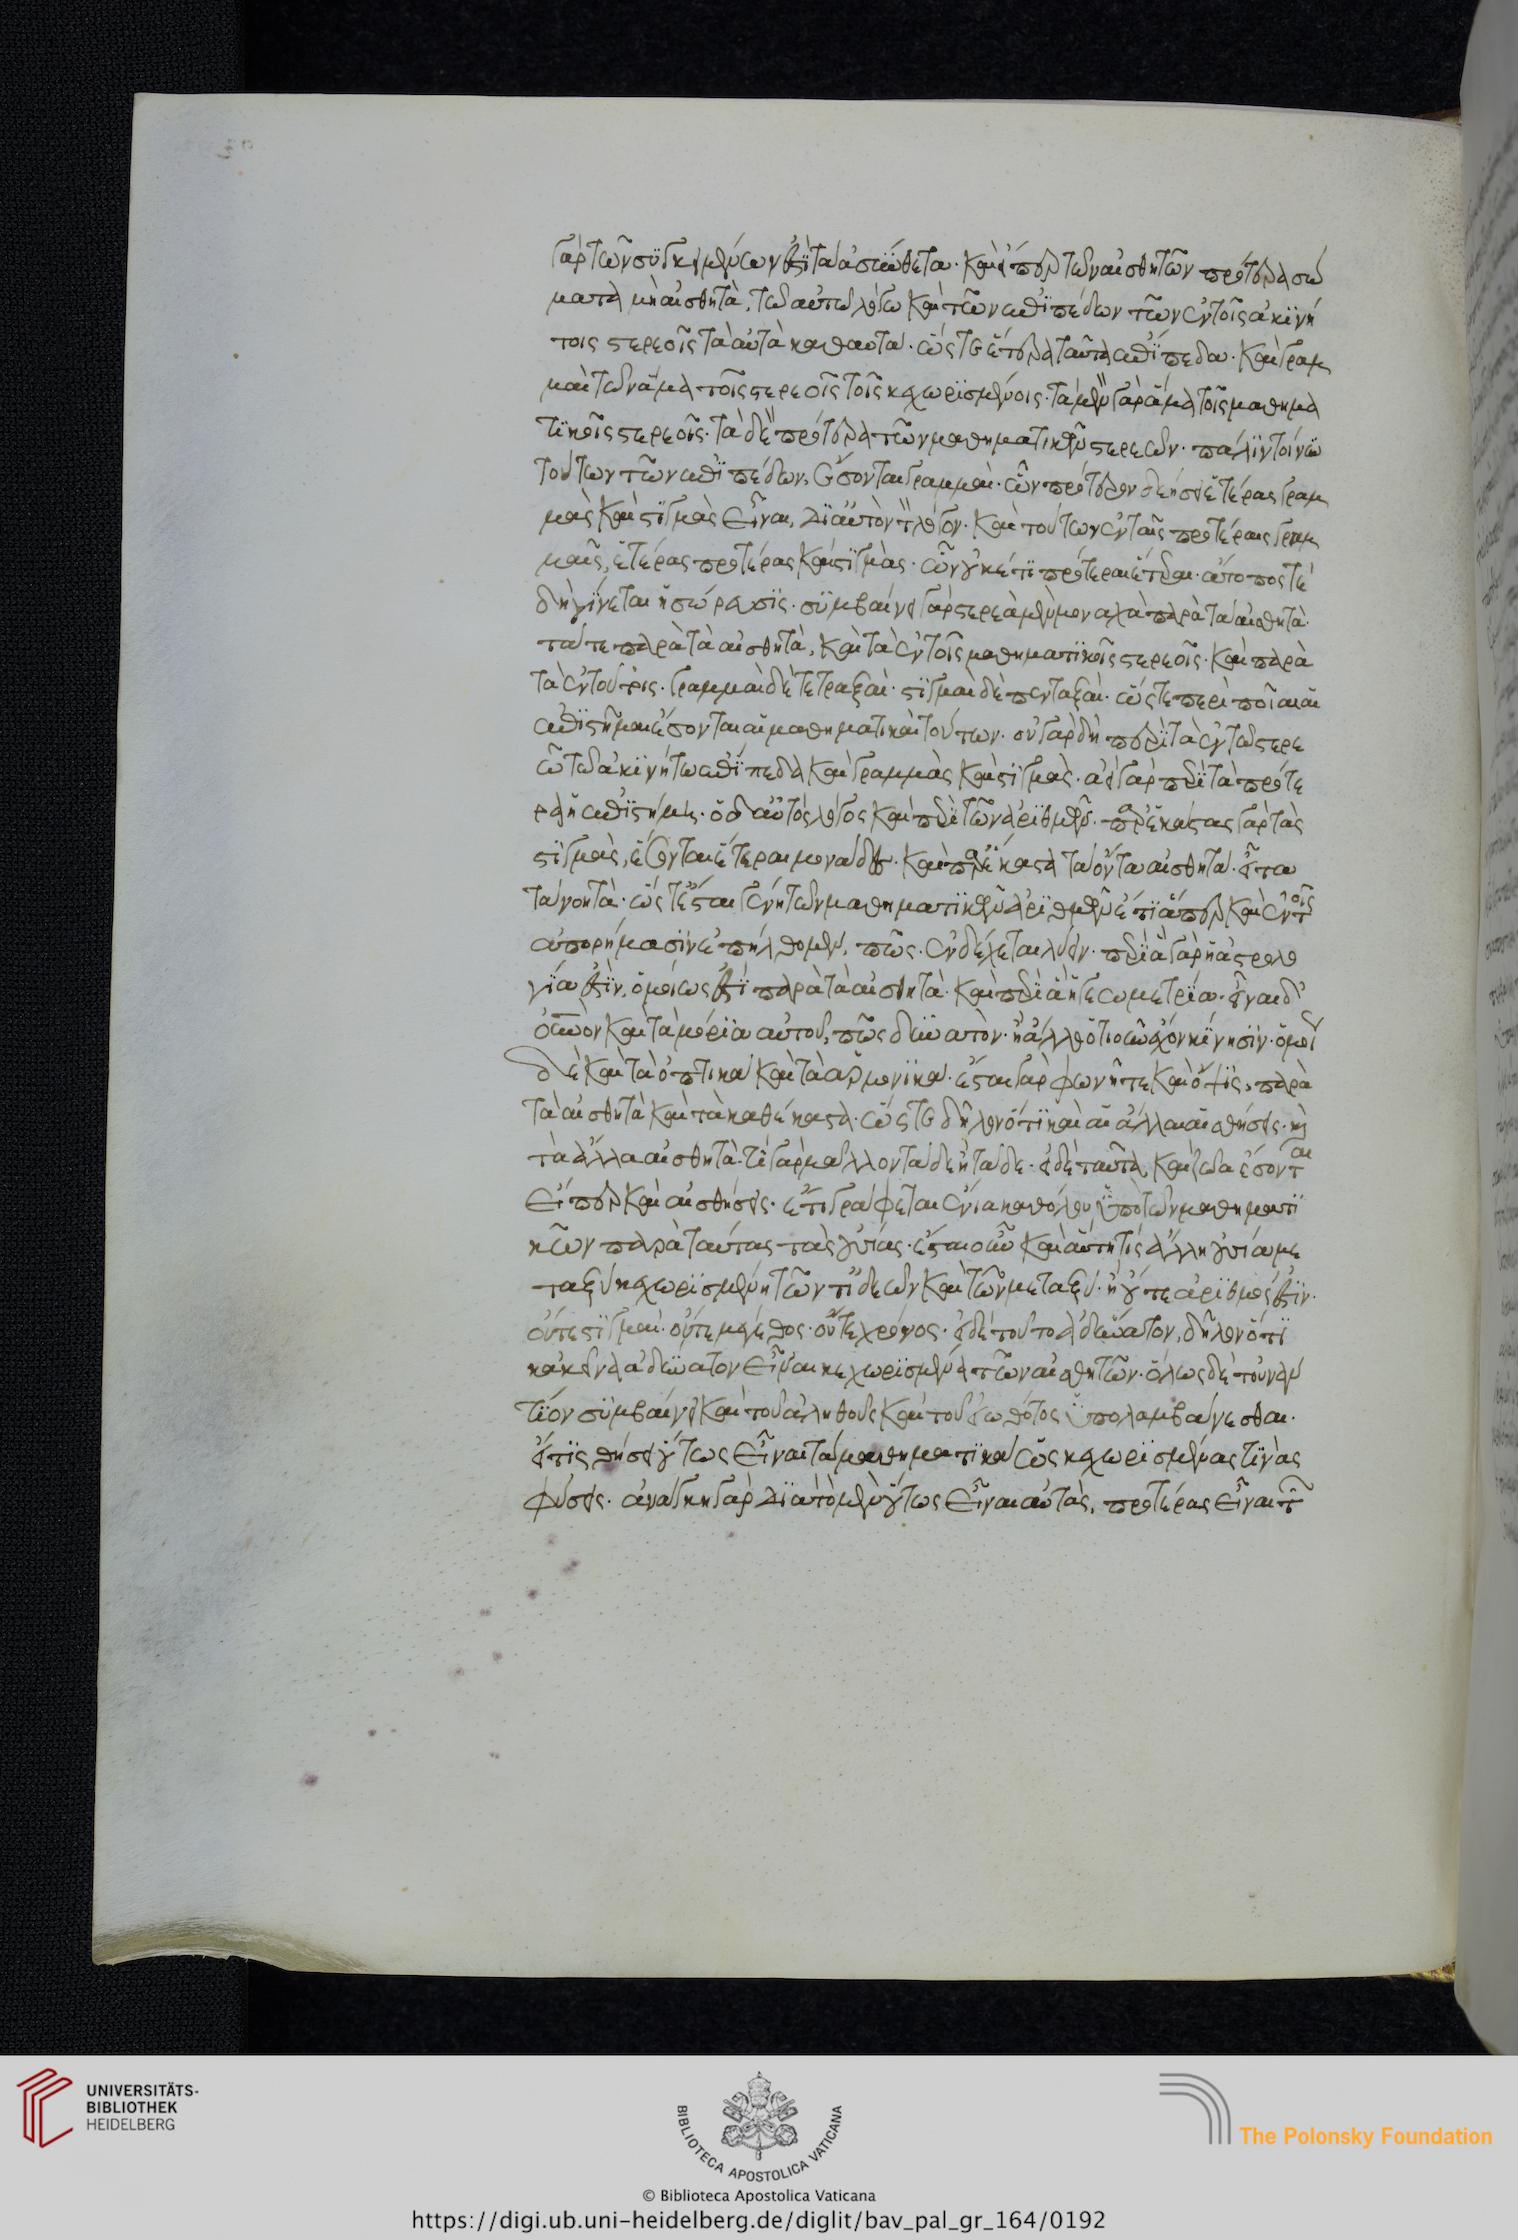 γὰρ τῶν συγκειμένων ἐστὶ τὰ ἀσύνθετα. καὶ εἴπερ τῶν αἰσθητῶν πρότερα σώ
ματα μὴ αἰσθητὰ, τῶ αὐτῶ λόγω καὶ τῶν ἐπιπέδων τῶν ἐν τοῖς ἀκινή
τοις στερεοῖς τὰ αὐτὰ καθαυτά. ὥστε ἕτερα ταῦτα ἐπίπεδα. καὶ γραμ
μαὶ τῶν ἅμα τοῖς στερεοῖς τοῖς κεχωρισμένοις. τὰ μὲν γὰρ ἅμα τοῖς μαθημα
τικοῖς στερεοῖς. τὰ δὲ πρότερα τῶν μαθηματικῶν στερεῶν. πάλιν τοίνυν
τούτων τῶν ἐπιπέδων, ἔσονται γραμμαὶ. ὧν πρότερον δεήσει ἑτέρας γραμ
μὰς καὶ στιγμὰς εἶναι, διὰ τὸν αὐτὸν λόγον. καὶ τούτων ἐν ταῖς προτέραις γραμ
μαῖς, ἑτέρας προτέρας καὶ στιγμὰς. ὧν οὐκέτι πρότεραι ἕτεραι. ἄτοπός τε
δὴ γίνεται ἡ σώρευσις. συμβαίνει γὰρ στερεὰ μὲν μοναχὰ παρὰ τὰ αἰσθητὰ.
τὰ τε παρὰ τὰ αἰσθητὰ, καὶ τὰ ἐν τοῖς μαθηματικοῖς στερεοῖς. καὶ παρὰ
τὰ ἐν τούτοις. γραμμαὶ δὲ τετραξαί. στιγμαὶ δὲ πενταξαί. ὥστε περὶ ποῖα αἱ
ἐπιστῆμαι ἔσονται αἱ μαθηματικαὶ τούτων. οὐ γὰρ δὴ περὶ τὰ ἐν τῶ στερε
ῶ τῶ ἀκινήτω ἐπίπεδα καὶ γραμμὰς καὶ στιγμάς. ἀεὶ γὰρ περὶ τὰ πρότε
ρα ἡ ἐπιστήμη. ὁ δ' αὐτὸς λόγος καὶ περὶ τῶν ἀριθμῶν. παρ' ἑκάστας γὰρ τὰς
στιγμὰς, ἔσονται ἕτεραι μονάδες. καὶ παρ' ἕκαστα τὰ ὄντα αἰσθητά. εἶτα
τὰ νοητά. ὥστε ἔσται γένη τῶν μαθηματικῶν ἀριθμῶν. ἔτι ἅπερ καὶ ἐν τοῖς
ἀπορήμασιν ἐπήλθομεν, πῶς ἐνδέχεται λύειν. περὶ ἃ γὰρ ἡ ἀστρολο
γία ἐστὶν, ὁμοίως ἐστὶ παρὰ τὰ αἰσθητὰ. καὶ περὶ ἃ ἡ γεωμετρία. εἶναι δ'
οὐρανὸν καὶ τὰ μόρια αὐτοῦ, πῶς δυνατὸν. ἢ ἄλλο ὁτιοῦν ἔχον κίνησιν. ὁμοί
δὲ καὶ τὰ ὀπτικὰ καὶ τὰ ἁρμονικά. ἔσται γὰρ φωνή τε καὶ ὄψις, παρὰ
τὰ αἰσθητὰ καὶ τὰ καθέκαστα. ὥστε δῆλον ὅτι καὶ αἱ ἄλλαι αἰσθήσεις. καὶ
τὰ ἄλλα αἰσθητά. τί γὰρ μᾶλλον τάδε ἢ τάδε. εἰ δὲ ταῦτα, καὶ ζῶα ἔσονται
εἴπερ καὶ αἰσθήσεις. ἔτι γράφεται ἔνια καθόλου ὑπὸ τῶν μαθηματι
κῶν παρὰ ταύτας τὰς οὐσίας. ἔσται οὖν καὶ αὕτη τίς ἄλλη οὐσία με
ταξὺ κεχωρισμένη τῶν τ' ἰδεῶν καὶ τῶν μεταξύ. ἣ οὔτε ἀριθμός ἐστιν.
οὔτε στιγμαί. οὔτε μέγεθος. οὔτε χρόνος. εἰ δὲ τοῦτο ἀδύνατον, δῆλον ὅτι
κἀκεῖνα ἀδύνατον εἶναι κεχωρισμένα τῶν αἰσθητῶν. ὅλως δὲ τοὐναν
τίον συμβαίνει καὶ τοῦ ἀληθοῦς καὶ τοῦ εἰωθότος ὑπολαμβάνεσθαι.
εἴ τις θήσει οὕτως εἶναι τὰ μαθηματικὰ ὡς κεχωρισμένας τινὰς
φύσεις. ἀνάγκη γὰρ διὰ τὸ μὲν οὕτως εἶναι αὐτὰς, προτέρας εἶναι τῶν
UNIVERSITÄTS-
BIBLIOTHEK
HEIDELBERG
BIBLIOTECA APOSTOLICA VATICANA
The Polonsky Foundation
© Biblioteca Apostolica Vaticana
https://digi.ub.uni-heidelberg.de/diglit/bav_pal_gr_164/0192